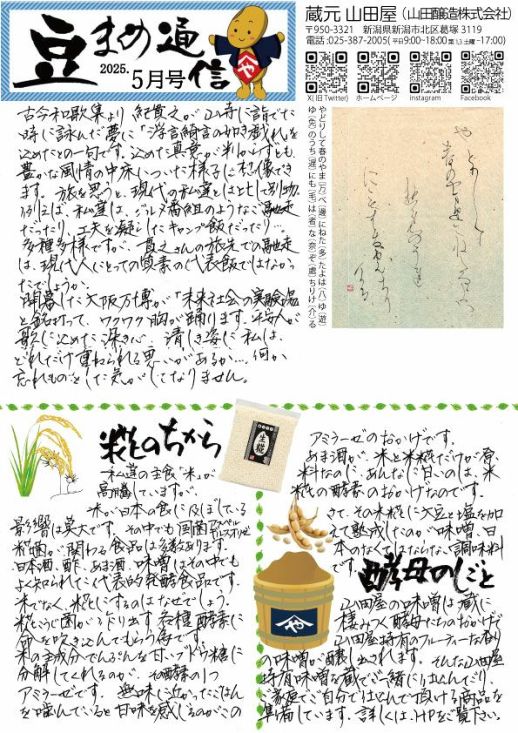 豆まめ通信
2025.
5月号
蔵元 山田屋(山田醸造株式会社)
〒950-3321 新潟県新潟市北区葛塚 3119
電話:025-387-2005(平日9:00-18:00 第1,3土曜-17:00)
X(旧Twitter)
ホームページ
instagram
Facebook
古今和歌集より 紀貫之が山寺に詣でた
時に詠んだ夢に「浮言綺語の如き戯れを
込めたとの一句です。込めた真意が判からずとも
豊かな風情の中床についた様子に想像でき
ます。旅を思うと、現代の私達とは比して別物。
例えば、私達は、グルメ番組のようなご馳走
だったり、工夫を凝らしたキャンプ飯だったり…
多種多様ですが、貫之さんの旅先での馳走
は、現代人にとっての質素の代表飯ではなかっ
たでしょうか。
開幕した大阪万博が「未来社会の実験場
と銘打って、ワクワク胸が踊ります。千年人が
歌に込めた深さに、清き姿に私は、
どれだけ重ねられる思いがあるか…何か
忘れものをした気がしてなりません。
やどりして春のやま(万)べ(遍)にねた(多)たよは(八)ゆ(遊)
ゆ(免)のうち(遅)にも(毛)は(者)な(奈)ぞ(處)ちりけ(介)る
糀のちから
私達の主食"米"が
高騰しています。が、
米が日本の食に及ぼしている
影響は莫大です。その中でも国菌
糀菌が関わる食品は多数あります。
日本酒、酢、あま酒、味噌はその中でも
よく知られたく代表的発酵食品です。
米でなく、米糀にするのはなぜでしょう。
糀という菌がつくり出す、各種酵素に
分を吹き込んでもらう為です。
米の主成分でんぷんを甘いブドウ糖に
分解してくれるのが、その酵素の1つ
アミラーゼです。無味に近かったごはん
を噛んでいると甘味を感じるのがこの
生糀
アミラーゼのおかげです。
あま酒が、米と米糀だけが原
料なのに、あんなに甘いのは、米
糀の酵素のおかげなのです。
さて、その米糀に大豆と塩を加
えて熟成したのが味噌、日
本のなくてはならなく調味料
です。
酵母のしごと
山田屋の味噌は蔵に
棲みつく酵母たちのおかげで
山田屋特有のフルーティーな香り
の味噌が醸し出されます。そんな山田屋
特有味噌を蔵でご一緒に仕込んでり、
ご家庭でご自分で仕込んで頂ける商品を
準備しています。詳しくは、HPをご覧下さい。